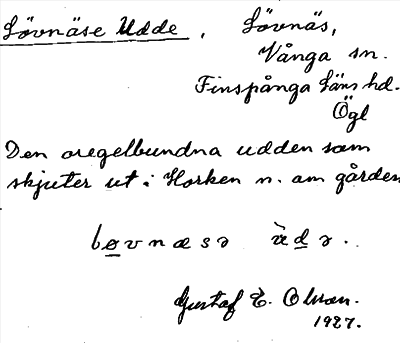 Lövnäse Udde, Lövnäs,
Vånga sn.
Finspånga Läns hd.
Ögl
Den oregelbundna udden som
skjuter ut i Horken n. om gården
løvnæsə
Gustaf E. Olsson.
1927.